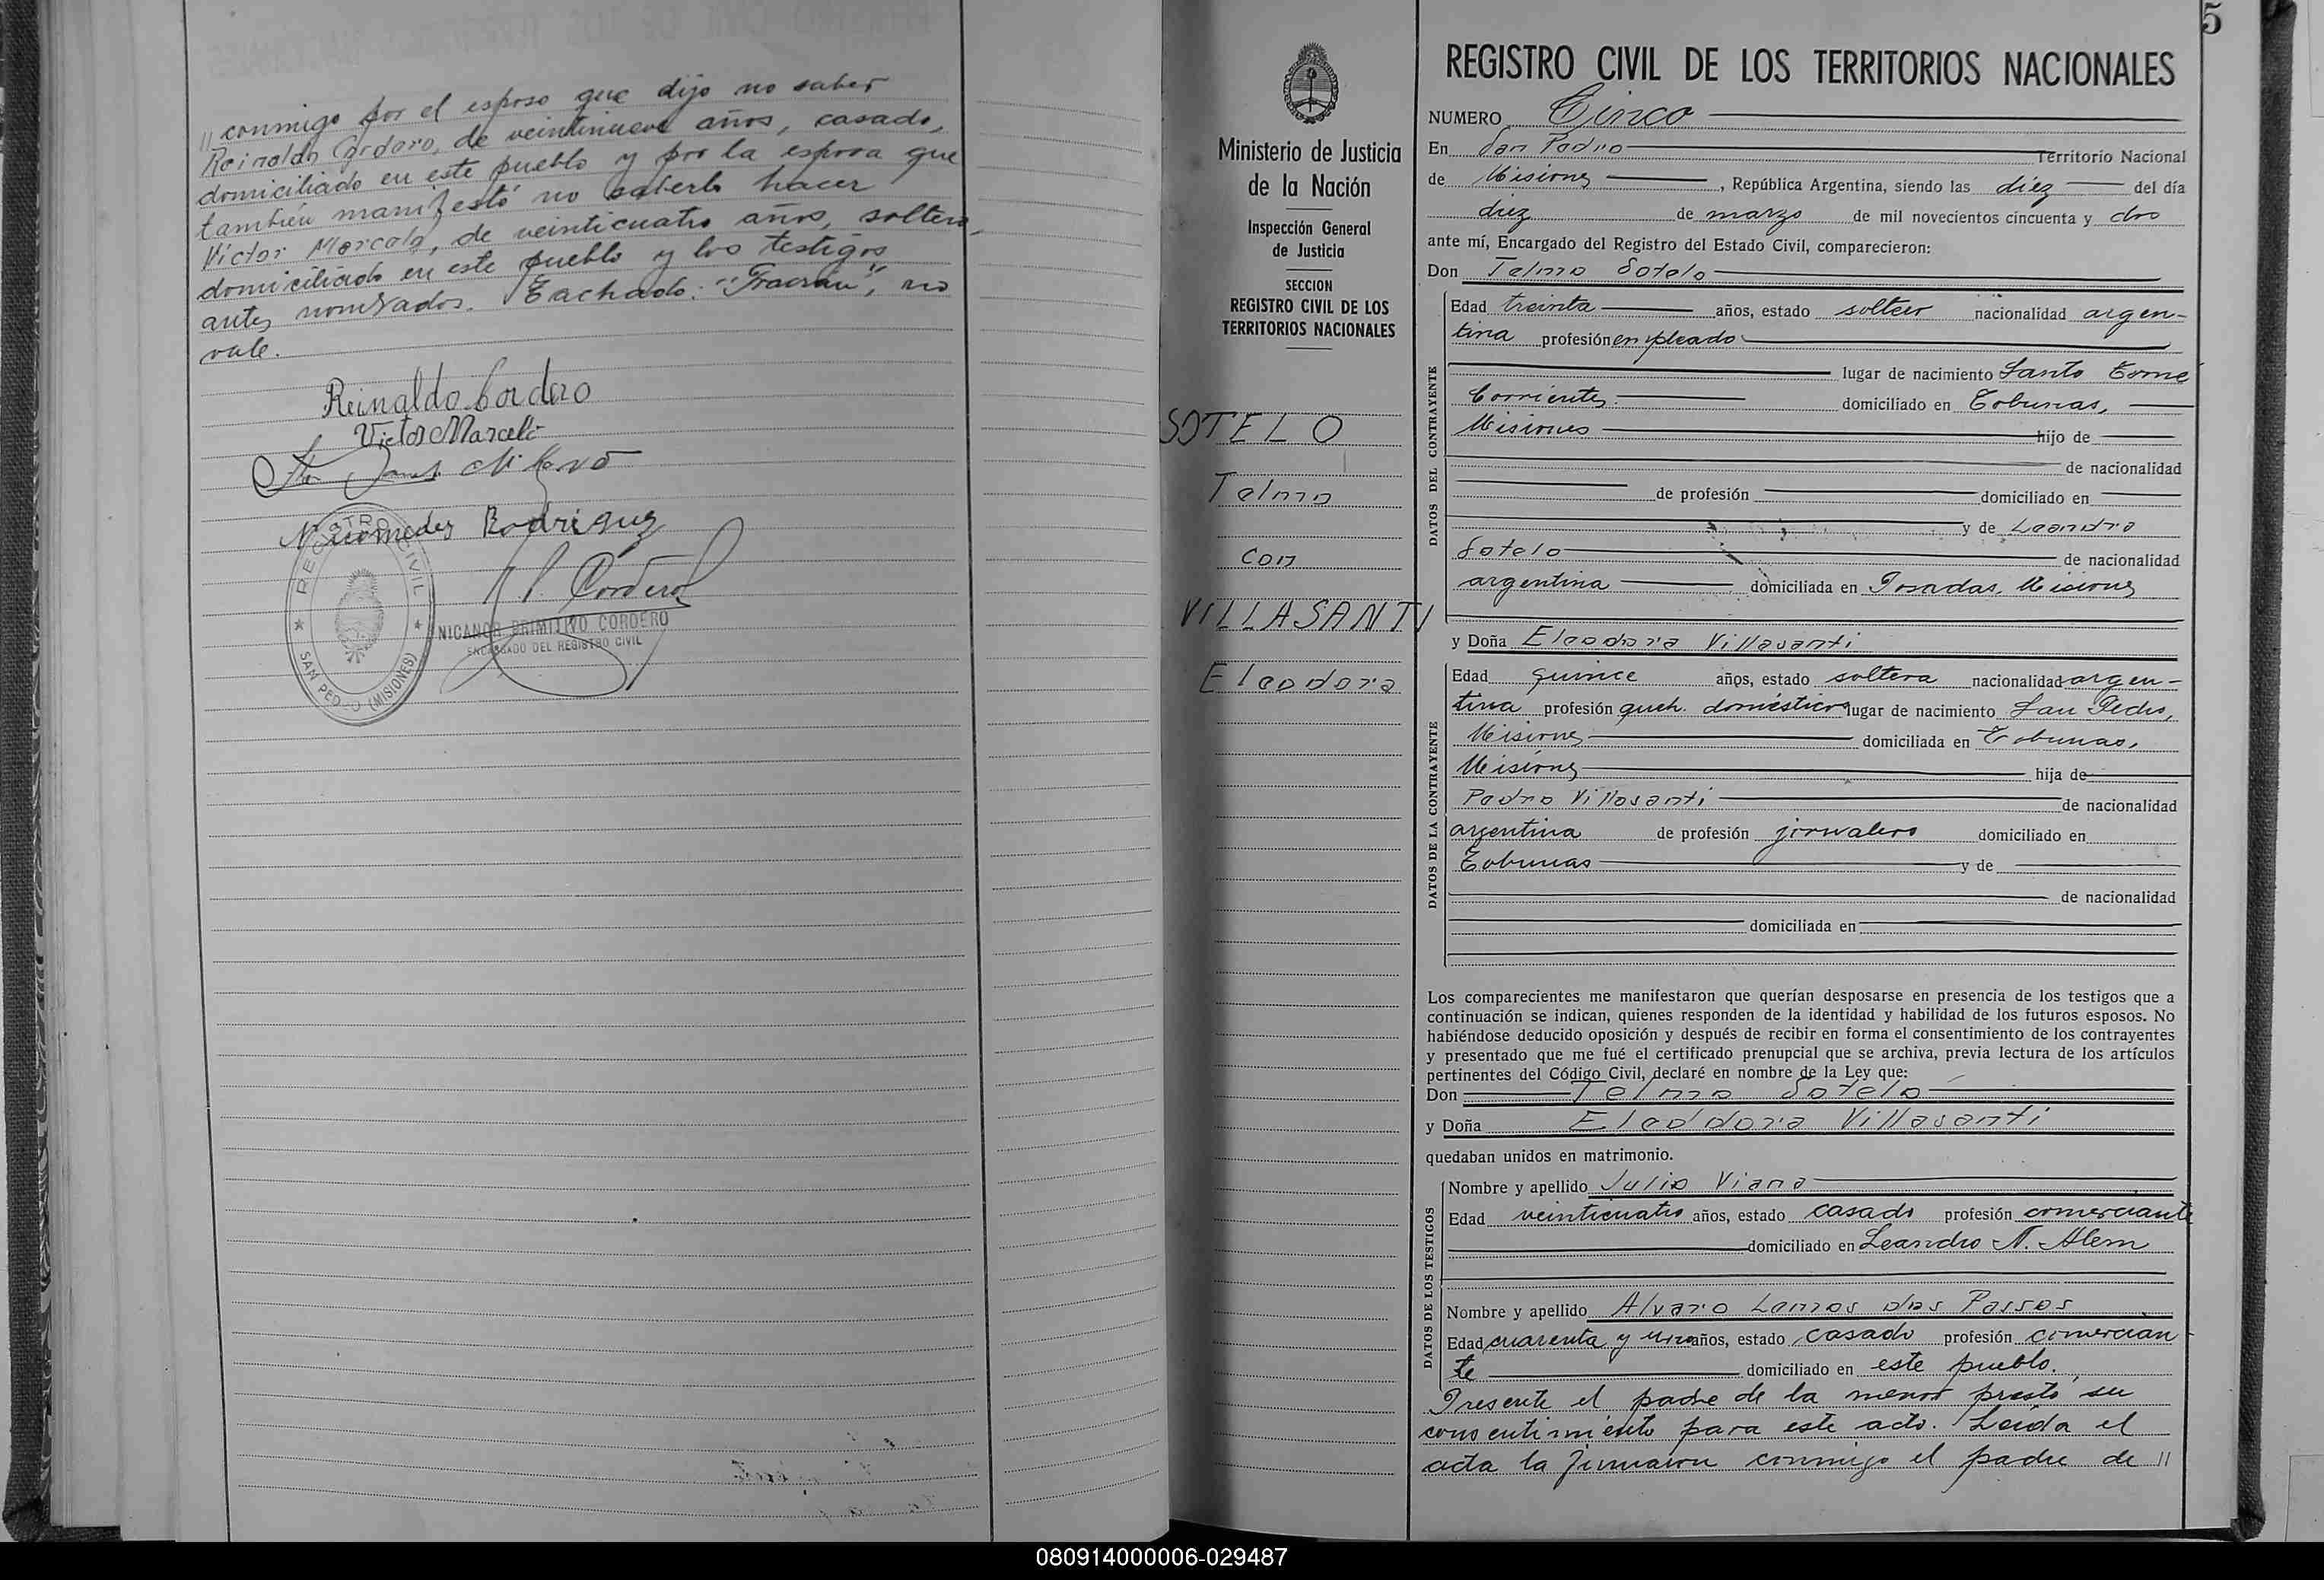 // conmigo por el esposo que dijo no saber
Reinaldo Cordero, de veintinueve años, casado,
domiciliado en este pueblo y por la esposa que
también manifestó no saberlo hacer
Víctor Marcelo, de veinticuatro años, soltero,
domiciliado en este pueblo y los testigos
antes nombrados. Tachado: "Fracrán", no
vale.
Reinaldo Cordero
Victor Marcelo
Nicomedes Rodriguez
P. Cordero
REGISTRO CIVIL
SAN PEDRO (MISIONES)
NICANOR PRIMITIVO CORDERO
ENCARGADO DEL REGISTRO CIVIL
5
Ministerio de Justicia
de la Nación
Inspección General
de Justicia
SECCION
REGISTRO CIVIL DE LOS
TERRITORIOS NACIONALES
SOTELO
Telmo
con
VILLASANTI
Eleodora
REGISTRO CIVIL DE LOS TERRITORIOS NACIONALES
NUMERO Cinco
En San Pedro Territorio Nacional
de Misiones, República Argentina, siendo las diez del día
diez de marzo de mil novecientos cincuenta y dos
ante mí, Encargado del Registro del Estado Civil, comparecieron:
Don Telmo Sotelo
DATOS DEL CONTRAYENTE
Edad treinta años, estado soltero nacionalidad argen-
tina profesión empleado
lugar de nacimiento Santo Tomé
Corrientes domiciliado en Tobunas,
Misiones hijo de
de nacionalidad
de profesión domiciliado en
y de Leandra
Sotelo de nacionalidad
argentina domiciliada en Posadas, Misiones
y Doña Eleodora Villasanti
DATOS DE LA CONTRAYENTE
Edad quince años, estado soltera nacionalidad argen-
tina profesión queh. domésticos lugar de nacimiento San Pedro,
Misiones domiciliada en Tobunas,
Misiones hija de
Pedro Villasanti de nacionalidad
argentina de profesión jornalero domiciliado en
Tobunas y de
de nacionalidad
domiciliada en
Los comparecientes me manifestaron que querían desposarse en presencia de los testigos que a
continuación se indican, quienes responden de la identidad y habilidad de los futuros esposos. No
habiéndose deducido oposición y después de recibir en forma el consentimiento de los contrayentes
y presentado que me fué el certificado prenupcial que se archiva, previa lectura de los artículos
pertinentes del Código Civil, declaré en nombre de la Ley que:
Don Telmo Sotelo
y Doña Eleodora Villasanti
quedaban unidos en matrimonio.
DATOS DE LOS TESTIGOS
Nombre y apellido Julio Viana
Edad veinticuatro años, estado casado profesión comerciante
domiciliado en Leandro N. Alem
Nombre y apellido Alvaro Lemos dos Passos
Edad cuarenta y uno años, estado casado profesión comercian-
te domiciliado en este pueblo.
Presente el padre de la menor prestó su
consentimiento para este acto. Leída el
acta la firmaron conmigo el padre de //
080914000006-029487